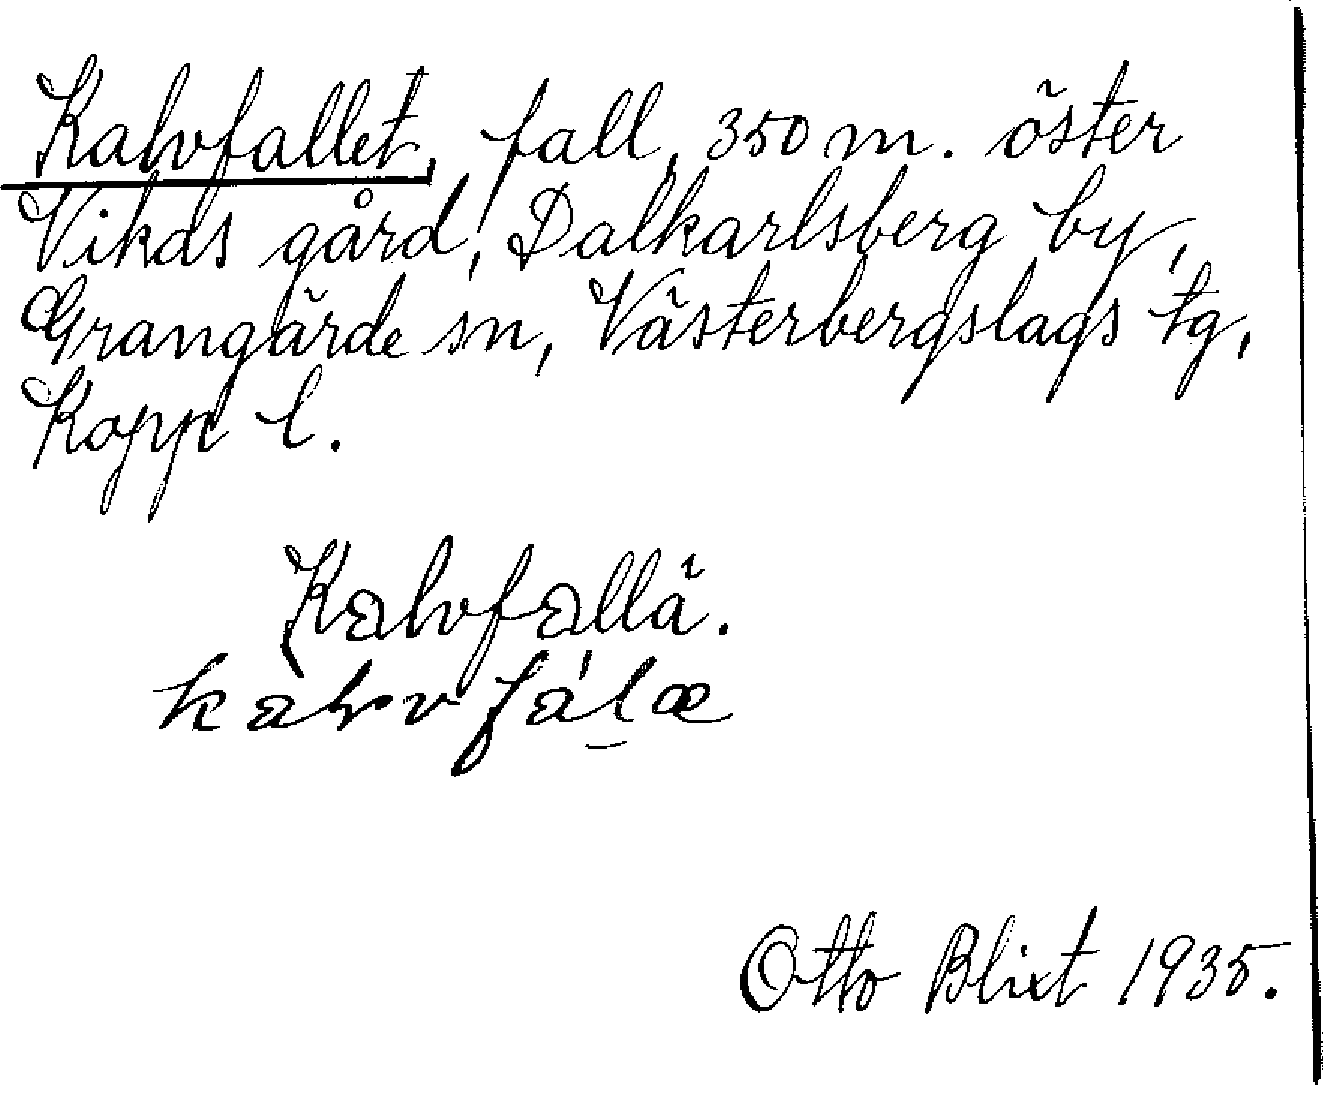 Kalvfallet, fall, 350 m. öster
Vikds gård, Dalkarlsberg by,
Grangärde sn, Västerbergslags tg,
Kopp l.
Kalvfallä.
Otto Blixt 1935.